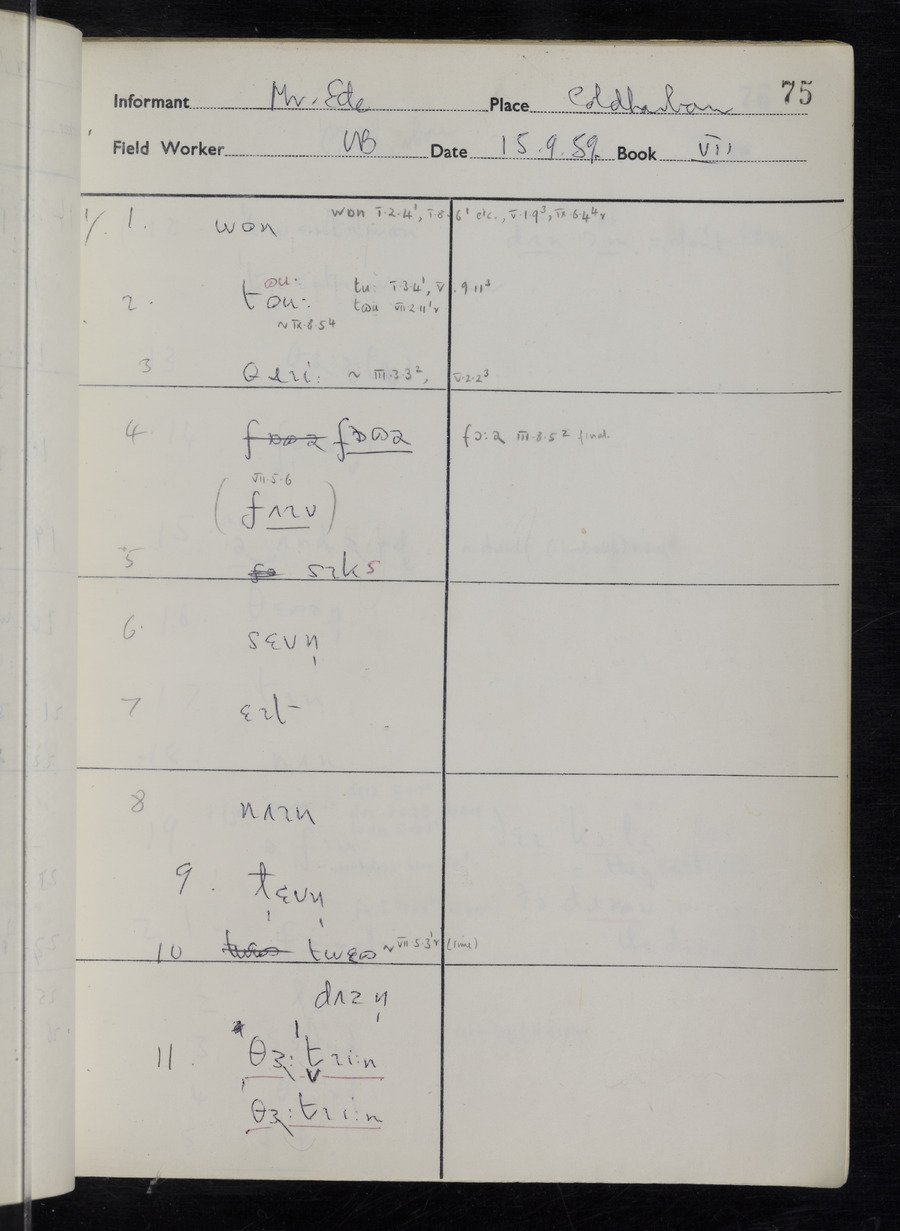 75
Informant Mr. Ede Place Coldharbour
Field Worker VB Date 15.9.59 Book VII
1/. 1. wɒn wɒn I.2.4¹, I.8.6¹ etc., V.1.9³, IX.6.4⁴r
2. tɷu: tu: I.3.4¹, V.9.11³
~ IX.8.5⁴ tɷu VII.2.11¹r
3 θɹɪi: ~ III.3.3², V.2.2³
4. fɒɷə fɔ:ə III.8.5² find.
VII.5.6
(fʌɪv)
5 sɪks
6. sɛvn̩
7 ɛɪt
8 nʌɪn
9. t̩ɛvn̩
10 twɛɷ ~ VII 5.3¹r (time)
dʌzn̩
11 * θɜ:ʈɪi:n
θɜ:tɪi:n